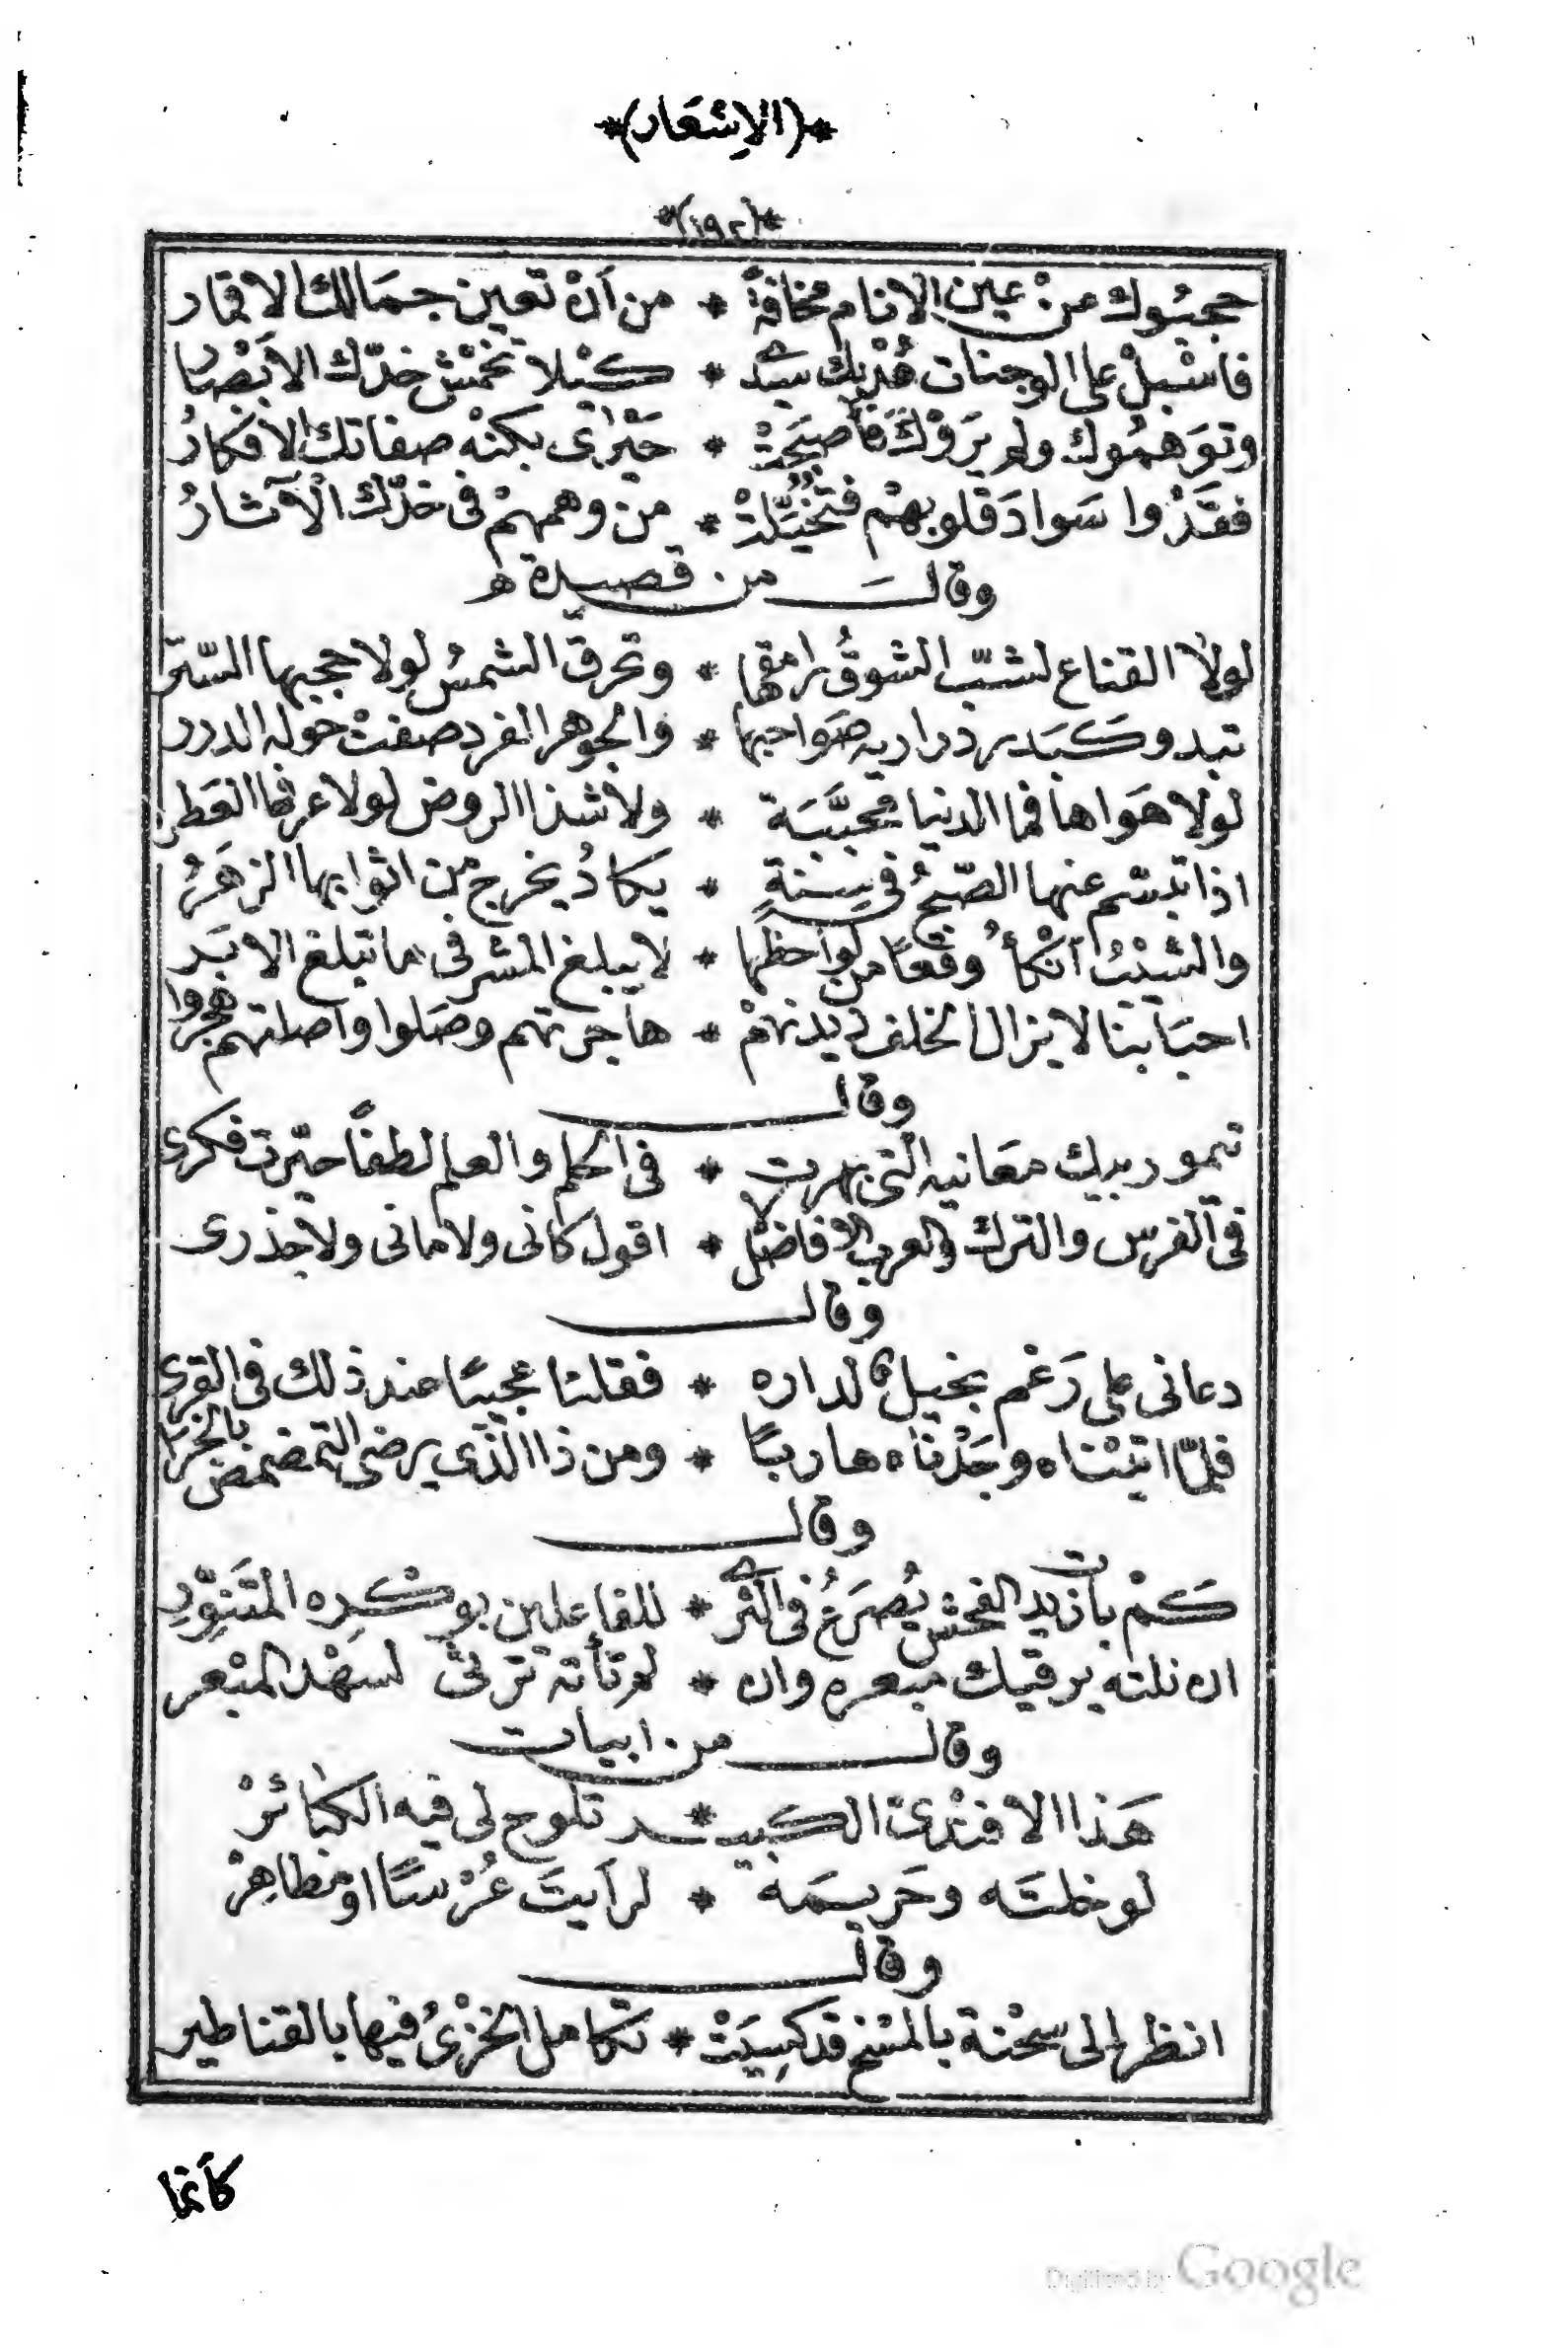 *(الاِشعَار)*
*(١٩٢)*
حجبُوك عنْ عين الانام مخافةً * من اَنْ تعين جمَالك الاقمار
فاسْبلْ على الوجنات هُدْبك سيدى * كيْلا تخمْش خدّك الابْصار
وتوَهمُوك ولم يَروْكَ فأصبَحتْ * حَيْرٰى بكنْه صفاتك الافكارُ
فقدْوا سَوادَ قلوبهمْ فتخُيّلتْ * منْ وهمهمْ فى خدّك الْآثارُ
وقالَ من قصيدة
لولا القناع لشبّ الشوقُ رامقها * وتحرق الشمسُ لولا حجبها السّتر
تبدو كبَدر دراريه ضَواحبها * والجوهر الفرد صفتْ حوله الدرر
لولا هَواها فما الدنيا محبَّبَة * ولا شذا الروض لولا عرفها العَطر
اذا تبسّم عنها الصّبحُ فى سِنةٍ * يكادُ يخرج من اثوابها الزهَرُ
والشنْبُ انْكأُ وقعًا من لواحظها * لا يبلغ المشرفى ما تبلغ الابَر
احبَابَنا لا يزال الخلف ديدنهمْ * هاجرتهم وصَلوا واصلتهم هجروا
وقال
تيمور بيك معَانيه التى بهرت * فى الحلم والعلم لطفًا حيّرت فكرى
فى الفرس والترك والعرب الافاضل * اقول كانى ولا مانى ولا جذرى
وقال
دعانى على رَغْم بخيل لداره * فقلنا عجيبًا عند ذلك فى القرى
فلمّا اتيْناه وجَدْناه هاربًا * ومن ذا الذى يرضى التمضمض بالخرا
وقال
كمْ بات زيد الفحش يُصرَعُ فى الثرى * للفاعلين بوكْرِه المتَنوِّرِ
ان نلته يرقيك مبعره وان * لم تأته تَرْنى لسهْد المبْعر
وقال من ابيات
هَذا الافنْدى الكبيـ * ـر تلوح لى فيه الكبٰائرْ
لو خلتَه وحَريمَهُ * لرأيتَ عُرْسًا او مظاهِرْ
وقال
انظر الى سحْنة بالمسْخ قد كسِيَتْ * تكامل الخزْىُ فيها بالقناطير
كأنما
Digitized by Google